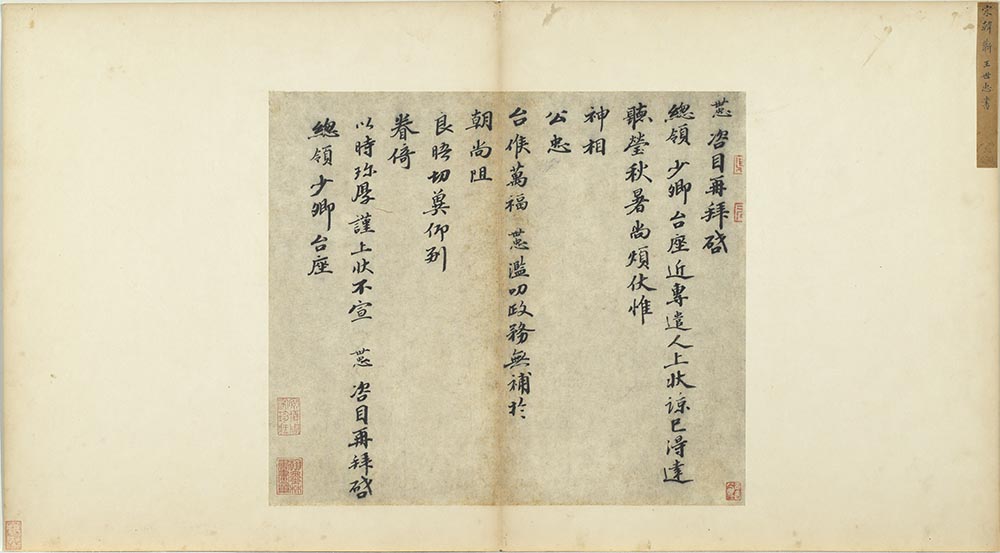 宋韓蘄王世忠書
世忠咨目再拜啓
總領少卿台座近專遣人上狀諒已得達
聽瑩秋暑尚煩伏惟
神相
公忠
台候萬福世忠濫叨政務無補於
朝尚阻
良晤切冀仰列
眷倚
以時珍厚謹上狀不宣世忠咨目再拜啓
總領少卿台座